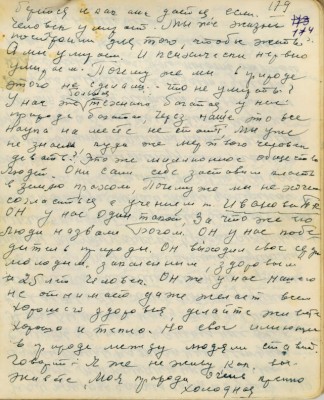 179
174
человек умирает. Мы же жизнь
построили для того, чтобы жить.
А мы умираем. И психически нервно
умираем. Почему же мы в природе
этого не сделали. что не умирать?
У нас же техника богатая у нас
природа богатая, через наше это все
Наука на месте не стоит. Мы уже
не знаем, куда же мертвого человека
девать? Это же миллионное общество
людей. Они сами себе заставили
в землю прахом, Почему же мы не хочем
согласиться с учением Иванова П.К
ОН у нас один такой. За что же его
люди назвали Богом. ОН у нас побе
дитель природы. Он
молодым, закаленным, здоровым
25 лет человек. Он же у нас ничего
не отнимает даже желает всем
хорошего здоровья делайте живите
Хорошо и тепло. Но свое
в природе между людями ставит.
Говорит: Я же не живу как вы
живете Моя природа очень крепко
холодная